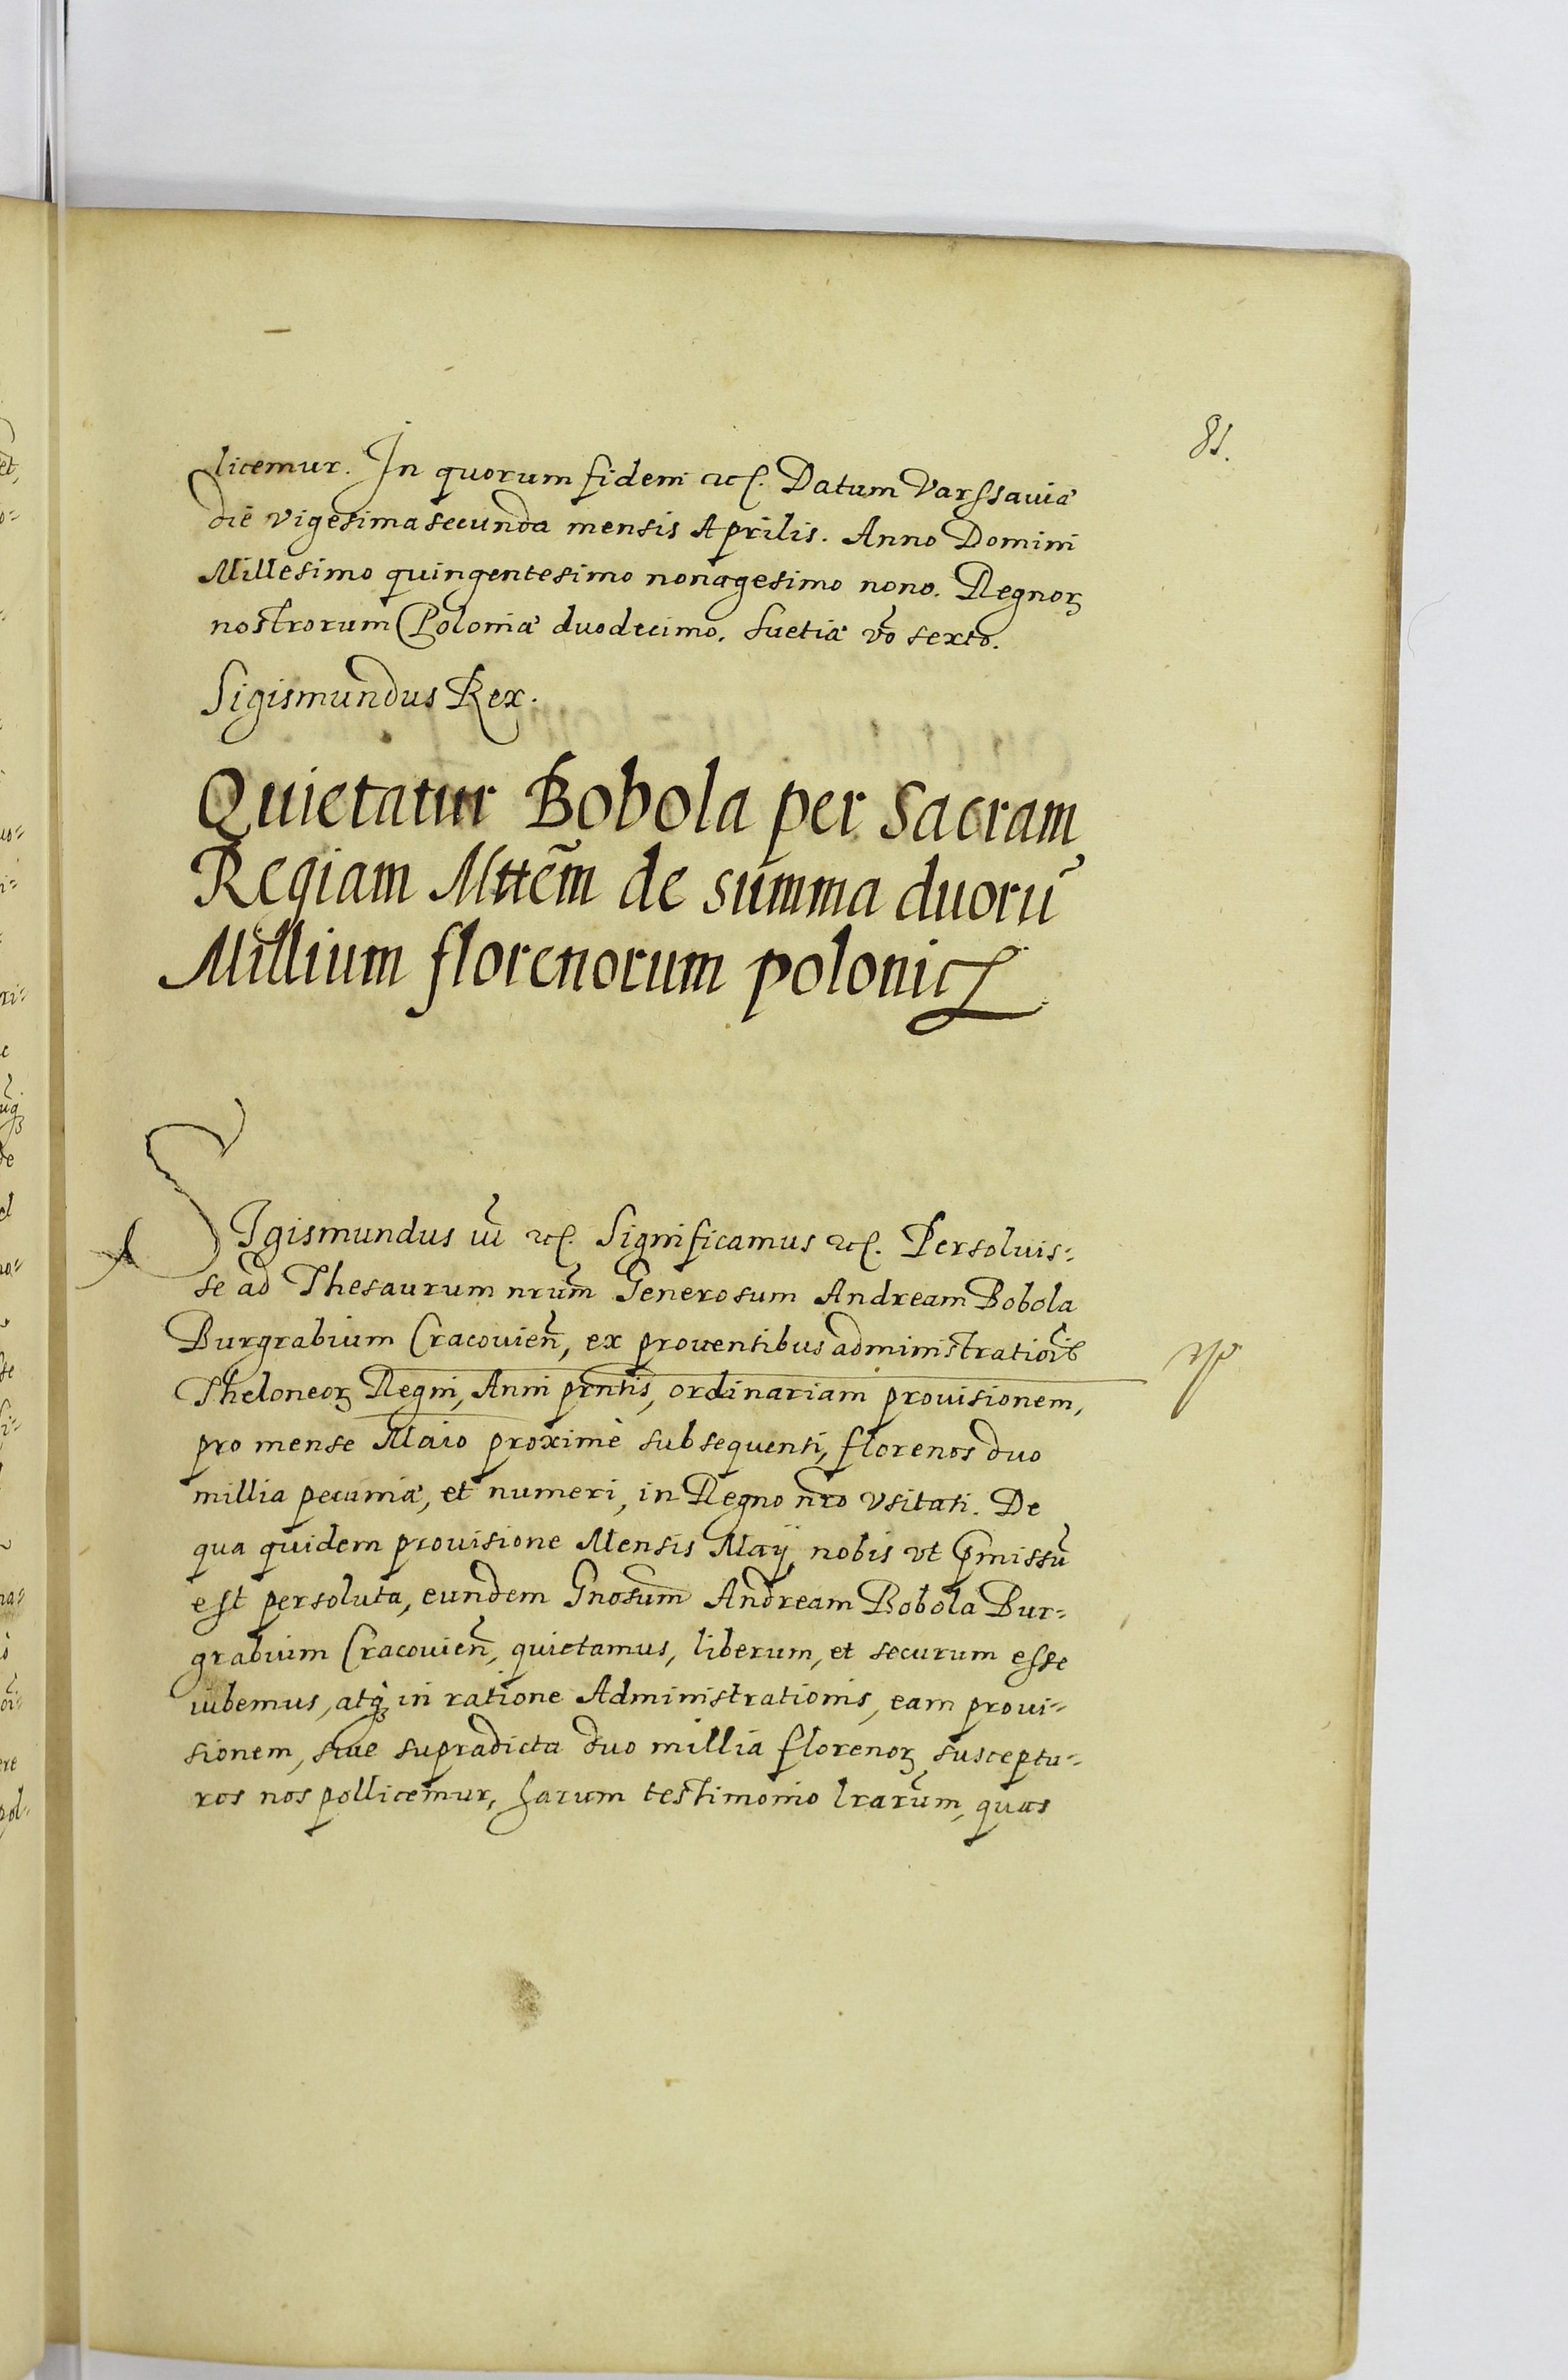 81.
licemur. In quorum fidem etc. Datum Varssauiæ
die vigesima secunda mensis Aprilis. Anno Domini
Millesimo quingentesimo nonagesimo nono. Regnoꝝ
nostrorum Poloniæ duodecimo. Suetiæ vo̅ sexto.
Sigismundus Rex.
Quietatur Bobola per Sacram
Regiam Mttem̅ de summa duoru̅
Millium florenorum polonic
SIgismundus iii etc. Significamus etc. Persoluis=
se ad Thesaurum nrum̅ Generosum Andream Bobola
Burgrabium Cracouien̅, ex prouentibus administratio̅is
Theloneoꝝ Regni, Anni prn̅tis, ordinariam prouisionem,
pro mense Maio proximè subsequenti, florenos duo
millia pecuniæ, et numeri, in Regno nr̅o vsitati. De
qua quidem prouisione Mensis Maij nobis vt p̅missu̅
est persoluta, eundem Gnosum̅ Andream Bobola Bur=
grabium Cracouien̅, quietamus, liberum, et securum esse
iubemus, atqꝫ in ratione Administrationis, eam proui=
sionem, siue supradicta duo millia florenoꝝ susceptu=
ros nos pollicemur, harum testimonio lrarum̅, quas